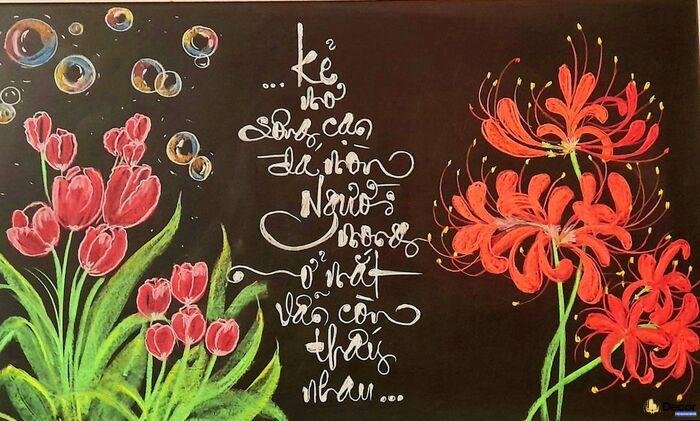 ...kẻ
sông cạn
đá mòn
Người
trong
ở mắt
vẫn còn
thấy
nhau...
Decor